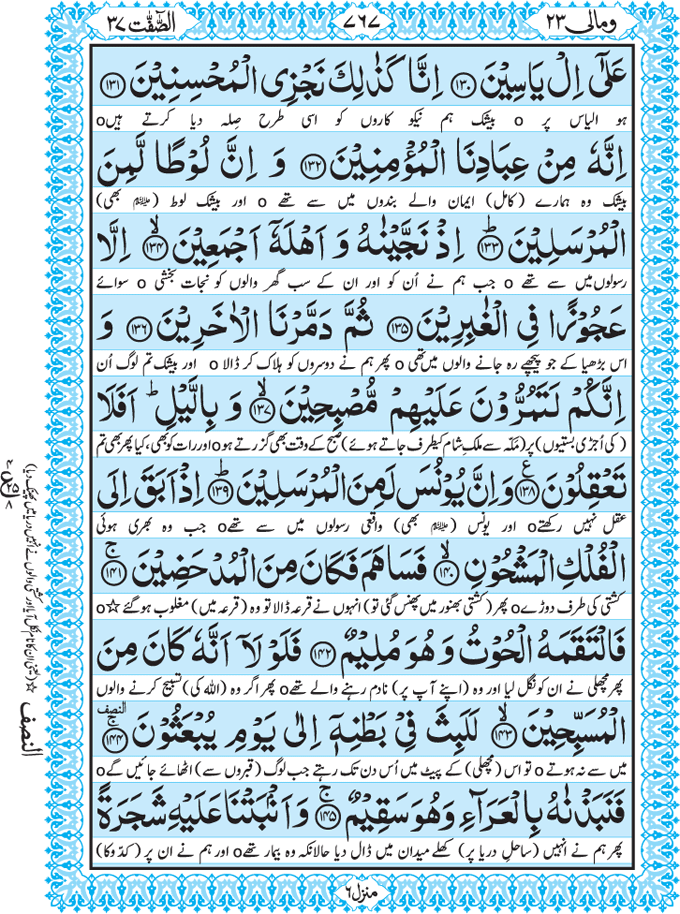 الصّٰفّٰت ۳۷
۷۶۷
ومالی ۲۳
عَلٰۤى اِلْ يَاسِيْنَ ﴿۱۳۰﴾ اِنَّا كَذٰلِكَ نَجْزِى الْمُحْسِنِيْنَ ﴿۱۳۱﴾
ہو الیاس پر o بیشک ہم نیکو کاروں کو اسی طرح صِلہ دیا کرتے ہیںo
اِنَّهٗ مِنْ عِبَادِنَا الْمُؤْمِنِيْنَ ﴿۱۳۲﴾ وَ اِنَّ لُوْطًا لَّمِنَ
بیشک وہ ہمارے (کامل) ایمان والے بندوں میں سے تھے o اور بیشک لوط (علیہ السلام بھی)
الْمُرْسَلِيْنَ ﴿۱۳۳﴾ؕ اِذْ نَجَّيْنٰهُ وَ اَهْلَهٗۤ اَجْمَعِيْنَ ﴿۱۳۴﴾ۙ اِلَّا
رسولوں میں سے تھے o جب ہم نے اُن کو اور ان کے سب گھر والوں کو نجات بخشی o سوائے
عَجُوْزًا فِى الْغٰبِرِيْنَ ﴿۱۳۵﴾ ثُمَّ دَمَّرْنَا الْاٰخَرِيْنَ ﴿۱۳۶﴾ وَ
اس بڑھیا کے جو پیچھے رہ جانے والوں میں تھی o پھر ہم نے دوسروں کو ہلاک کر ڈالا o اور بیشک تم لوگ اُن
اِنَّكُمْ لَتَمُرُّوْنَ عَلَيْهِمْ مُّصْبِحِيْنَ ﴿۱۳۷﴾ۙ وَ بِالَّيْلِ ؕ اَفَلَا
(کی اُجڑی بستیوں) پر (مَکّہ سے ملکِ شام کیطرف جاتے ہوئے) صبح کے وقت بھی گزرتے ہوo اور رات کو بھی، کیا پھر بھی تم
تَعْقِلُوْنَ ﴿۱۳۸﴾ع وَ اِنَّ يُوْنُسَ لَمِنَ الْمُرْسَلِيْنَ ﴿۱۳۹﴾ؕ اِذْ اَبَقَ اِلَى
عقل نہیں رکھتےo اور یونس (علیہ السلام بھی) واقعی رسولوں میں سے تھےo جب وہ بھری ہوئی
الْفُلْكِ الْمَشْحُوْنِ ﴿۱۴۰﴾ۙ فَسَاهَمَ فَكَانَ مِنَ الْمُدْحَضِيْنَ ﴿۱۴۱﴾ۚ
کشتی کی طرف دوڑےo پھر (کشتی بھنور میں پھنس گئی تو) انہوں نے قرعہ ڈالا تو وہ (قرعہ میں) مغلوب ہوگئےo☆
فَالْتَقَمَهُ الْحُوْتُ وَ هُوَ مُلِيْمٌ ﴿۱۴۲﴾ فَلَوْ لَاۤ اَنَّهٗ كَانَ مِنَ
پھر مچھلی نے ان کو نگل لیا اور وہ (اپنے آپ پر) نادم رہنے والے تھےo پھر اگر وہ (اللہ کی) تسبیح کرنے والوں
الْمُسَبِّحِيْنَ ﴿۱۴۳﴾ۙ لَلَبِثَ فِىْ بَطْنِهٖۤ اِلٰى يَوْمِ يُبْعَثُوْنَ ﴿۱۴۴﴾ۚ النصف
میں سے نہ ہوتےo تو اس (مچھلی) کے پیٹ میں اُس دن تک رہتے جب لوگ (قبروں سے) اٹھائے جائیں گےo
فَنَبَذْنٰهُ بِالْعَرَآءِ وَ هُوَ سَقِيْمٌ ﴿۱۴۵﴾ۚ وَ اَنْۢبَتْنَا عَلَيْهِ شَجَرَةً
پھر ہم نے انہیں (ساحلِ دریا پر) کھلے میدان میں ڈال دیا حالانکہ وہ بیمار تھےo اور ہم نے ان پر (کدّو کا)
منزل ۶
النصف